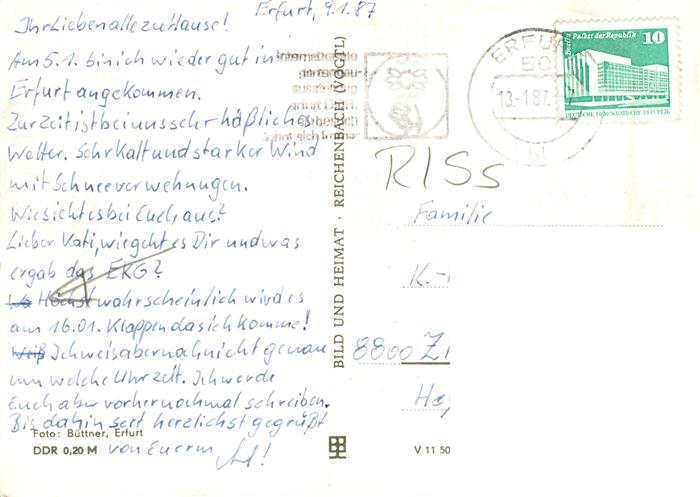 Erfurt, 9.1.87
Ihr Lieben alle zu Hause!
Am 5.1. bin ich wieder gut in
Erfurt angekommen.
Zur Zeit ist bei uns sehr häßliches
Wetter. Sehr kalt und starker Wind
mit Schneeverwehungen.
Wie sieht es bei Euch aus?
Lieber Vati, wie geht es Dir und was
ergab das EKG?
Höchstwahrscheinlich wird es
am 16.01. klappen das ich komme!
Weiß Ich weis aber noch nicht genau
um welche Uhrzeit. Ich werde
Euch aber vorher nochmal schreiben.
Bis dahin seit herzlichst gegrüßt
von Euerm
Foto: Büttner, Erfurt
DDR 0,20 M
BILD UND HEIMAT · REICHENBACH (VOGTL)
V 11 50
ERFU
50
13.-1.87
bt
Berlin Palast der Republik
10
DEUTSCHE DEMOKRATISCHE REPUBLIK
RISS
Familie
K.-
8800 Zi